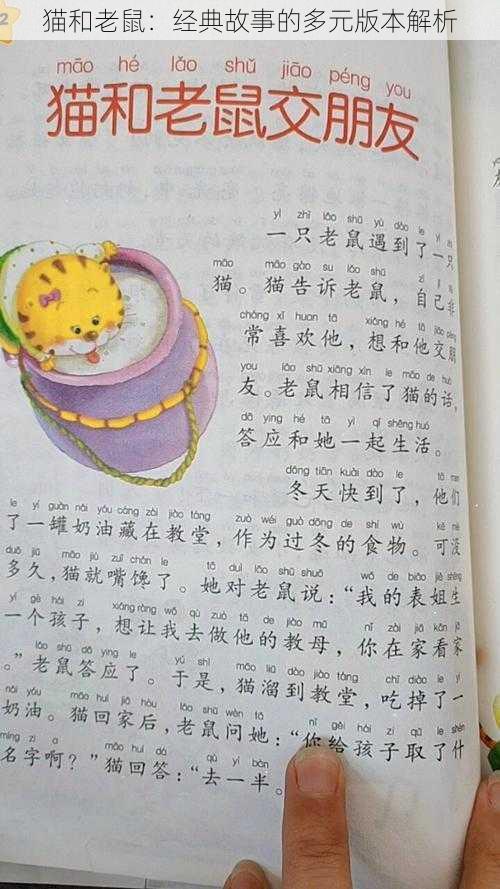 2
猫和老鼠：经典故事的多元版本解析
māo hé lǎo shǔ jiāo péng you
猫和老鼠交朋友
yì zhī lǎo shǔ yù dào le yì zhī
一只老鼠遇到了一只
māo māo gào su lǎo shǔ zì jǐ
猫。猫告诉老鼠，自己非
cháng xǐ huan tā xiǎng hé tā jiāo péng
常喜欢他，想和他交朋
you lǎo shǔ xiāng xìn le māo de huà
友。老鼠相信了猫的话，
dā ying hé tā yì qǐ shēng huó
答应和她一起生活。
dōng tiān kuài dào le tā men
冬天快到了，他们
le yí guàn nǎi yóu cáng zài jiào táng zuò wéi guò dōng de shí wù kě méi
了一罐奶油藏在教堂，作为过冬的食物。可没
duō jiǔ māo jiù zuǐ chán le tā duì lǎo shǔ shuō wǒ de biǎo jiě shēng
多久，猫就嘴馋了。她对老鼠说：“我的表姐生
yí gè hái zi xiǎng ràng wǒ qù zuò tā de jiào mǔ nǐ zài jiā kān jiā
一个孩子，想让我去做他的教母，你在家看家
lǎo shǔ dā ying le yú shì māo liū dào jiào táng chī diào le yí
。”老鼠答应了。于是，猫溜到教堂，吃掉了一
nǎi yóu māo huí jiā hòu lǎo shǔ wèn tā nǐ gěi hái zi qǔ le shén
奶油。猫回家后，老鼠问她：“你给孩子取了什
míng zi a māo huí dá qù yí bàn
名字啊？”猫回答：“去一半。